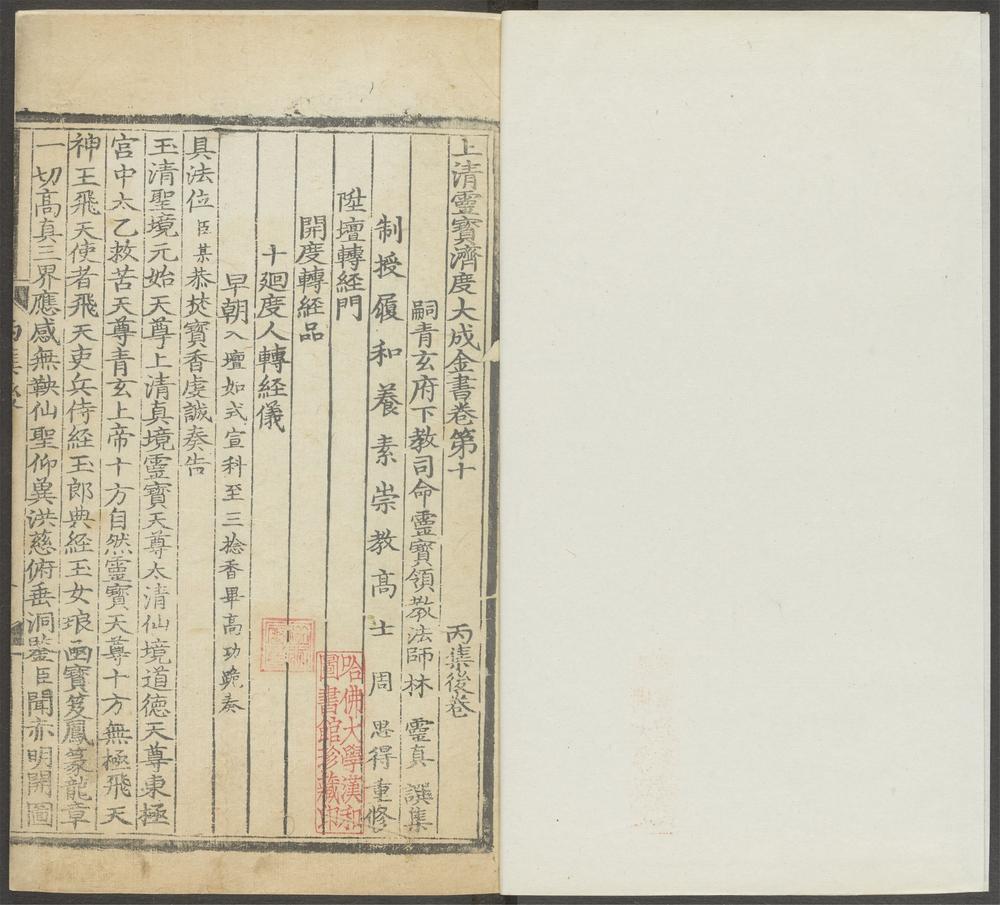 上清靈寶濟度大成金書卷第十 丙集後卷
嗣青玄府下教司命靈寶領教法師林 靈真 譔集
制授履和養素崇教高士 周 思得重修
陞壇轉經門
開度轉經品
十廻度人轉經儀
早朝入壇如式宣科至三捻香畢高功跪奏
具法位臣某恭焚寶香虔誠奏告
玉清聖境元始天尊上清真境靈寶天尊太清仙境道德天尊東極
宮中太乙救苦天尊青玄上帝十方自然靈寶天尊十方無極飛天
神王飛天使者飛天吏兵侍經玉郎典經玉女琅函寶笈鳳篆龍章
一切高真三界應感無鞅仙聖仰兾洪慈俯垂洞鑒臣聞赤明開圖
哈佛大學漢和
圖書館珍藏印